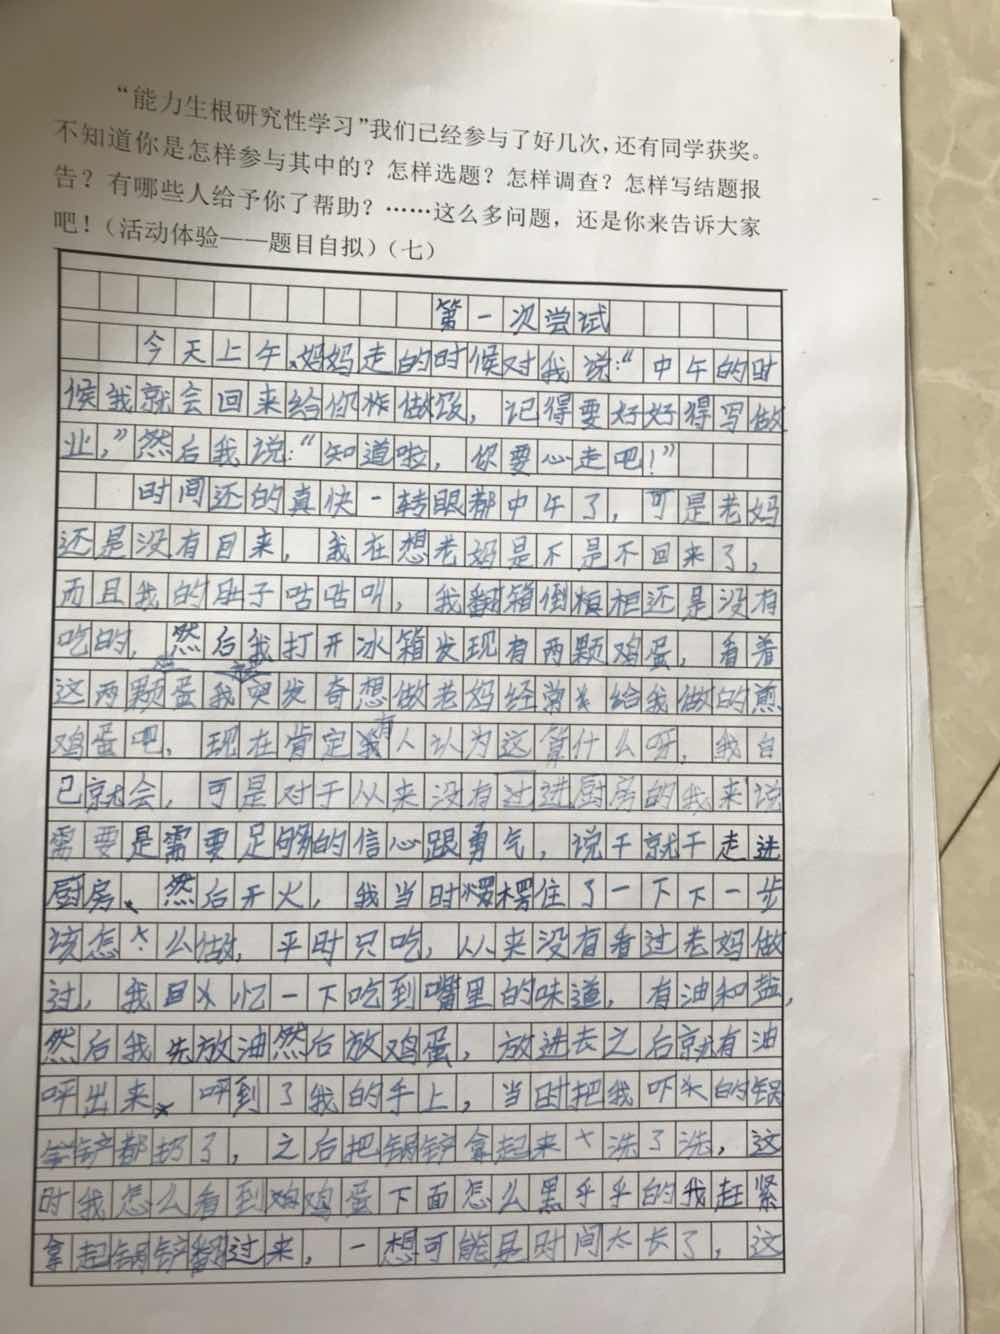 “能力生根研究性学习”我们已经参与了好几次，还有同学获奖。
不知道你是怎样参与其中的？怎样选题？怎样调查？怎样写结题报
告？有哪些人给予你了帮助？……这么多问题，还是你来告诉大家
吧！（活动体验——题目自拟）（七）
第一次尝试
今天上午、妈妈走的时候对我说：“中午的时
候我就会回来给你做饭，记得要好好得写做
业，”然后我说：“知道啦，你要心走吧！”
时间还的真快一转眼都中午了，可是老妈
还是没有回来，我在想老妈是不是不回来了，
而且我的肚子咕咕叫，我翻箱倒柜还是没有
吃的，然后我打开冰箱发现有两颗鸡蛋，看着
这两颗蛋我突发奇想做老妈经常给我做的煎
鸡蛋吧，现在肯定有人认为这算什么呀，我自
己就会，可是对于从来没有过进厨房的我来说
需要是需要足够的信心跟勇气，说干就干走进
厨房、然后开火，我当时愣住了一下下一步
该怎么做，平时只吃，从来没有看过老妈做
过，我回忆一下吃到嘴里的味道，有油和盐，
然后我先放油然后放鸡蛋，放进去之后就有油
呯出来、呯到了我的手上，当时把我吓的锅
铲都扔了，之后把锅铲拿起来洗了洗，这
时我怎么看到鸡鸡蛋下面怎么黑乎乎的我赶紧
拿起锅铲翻过来，一想可能是时间太长了，这